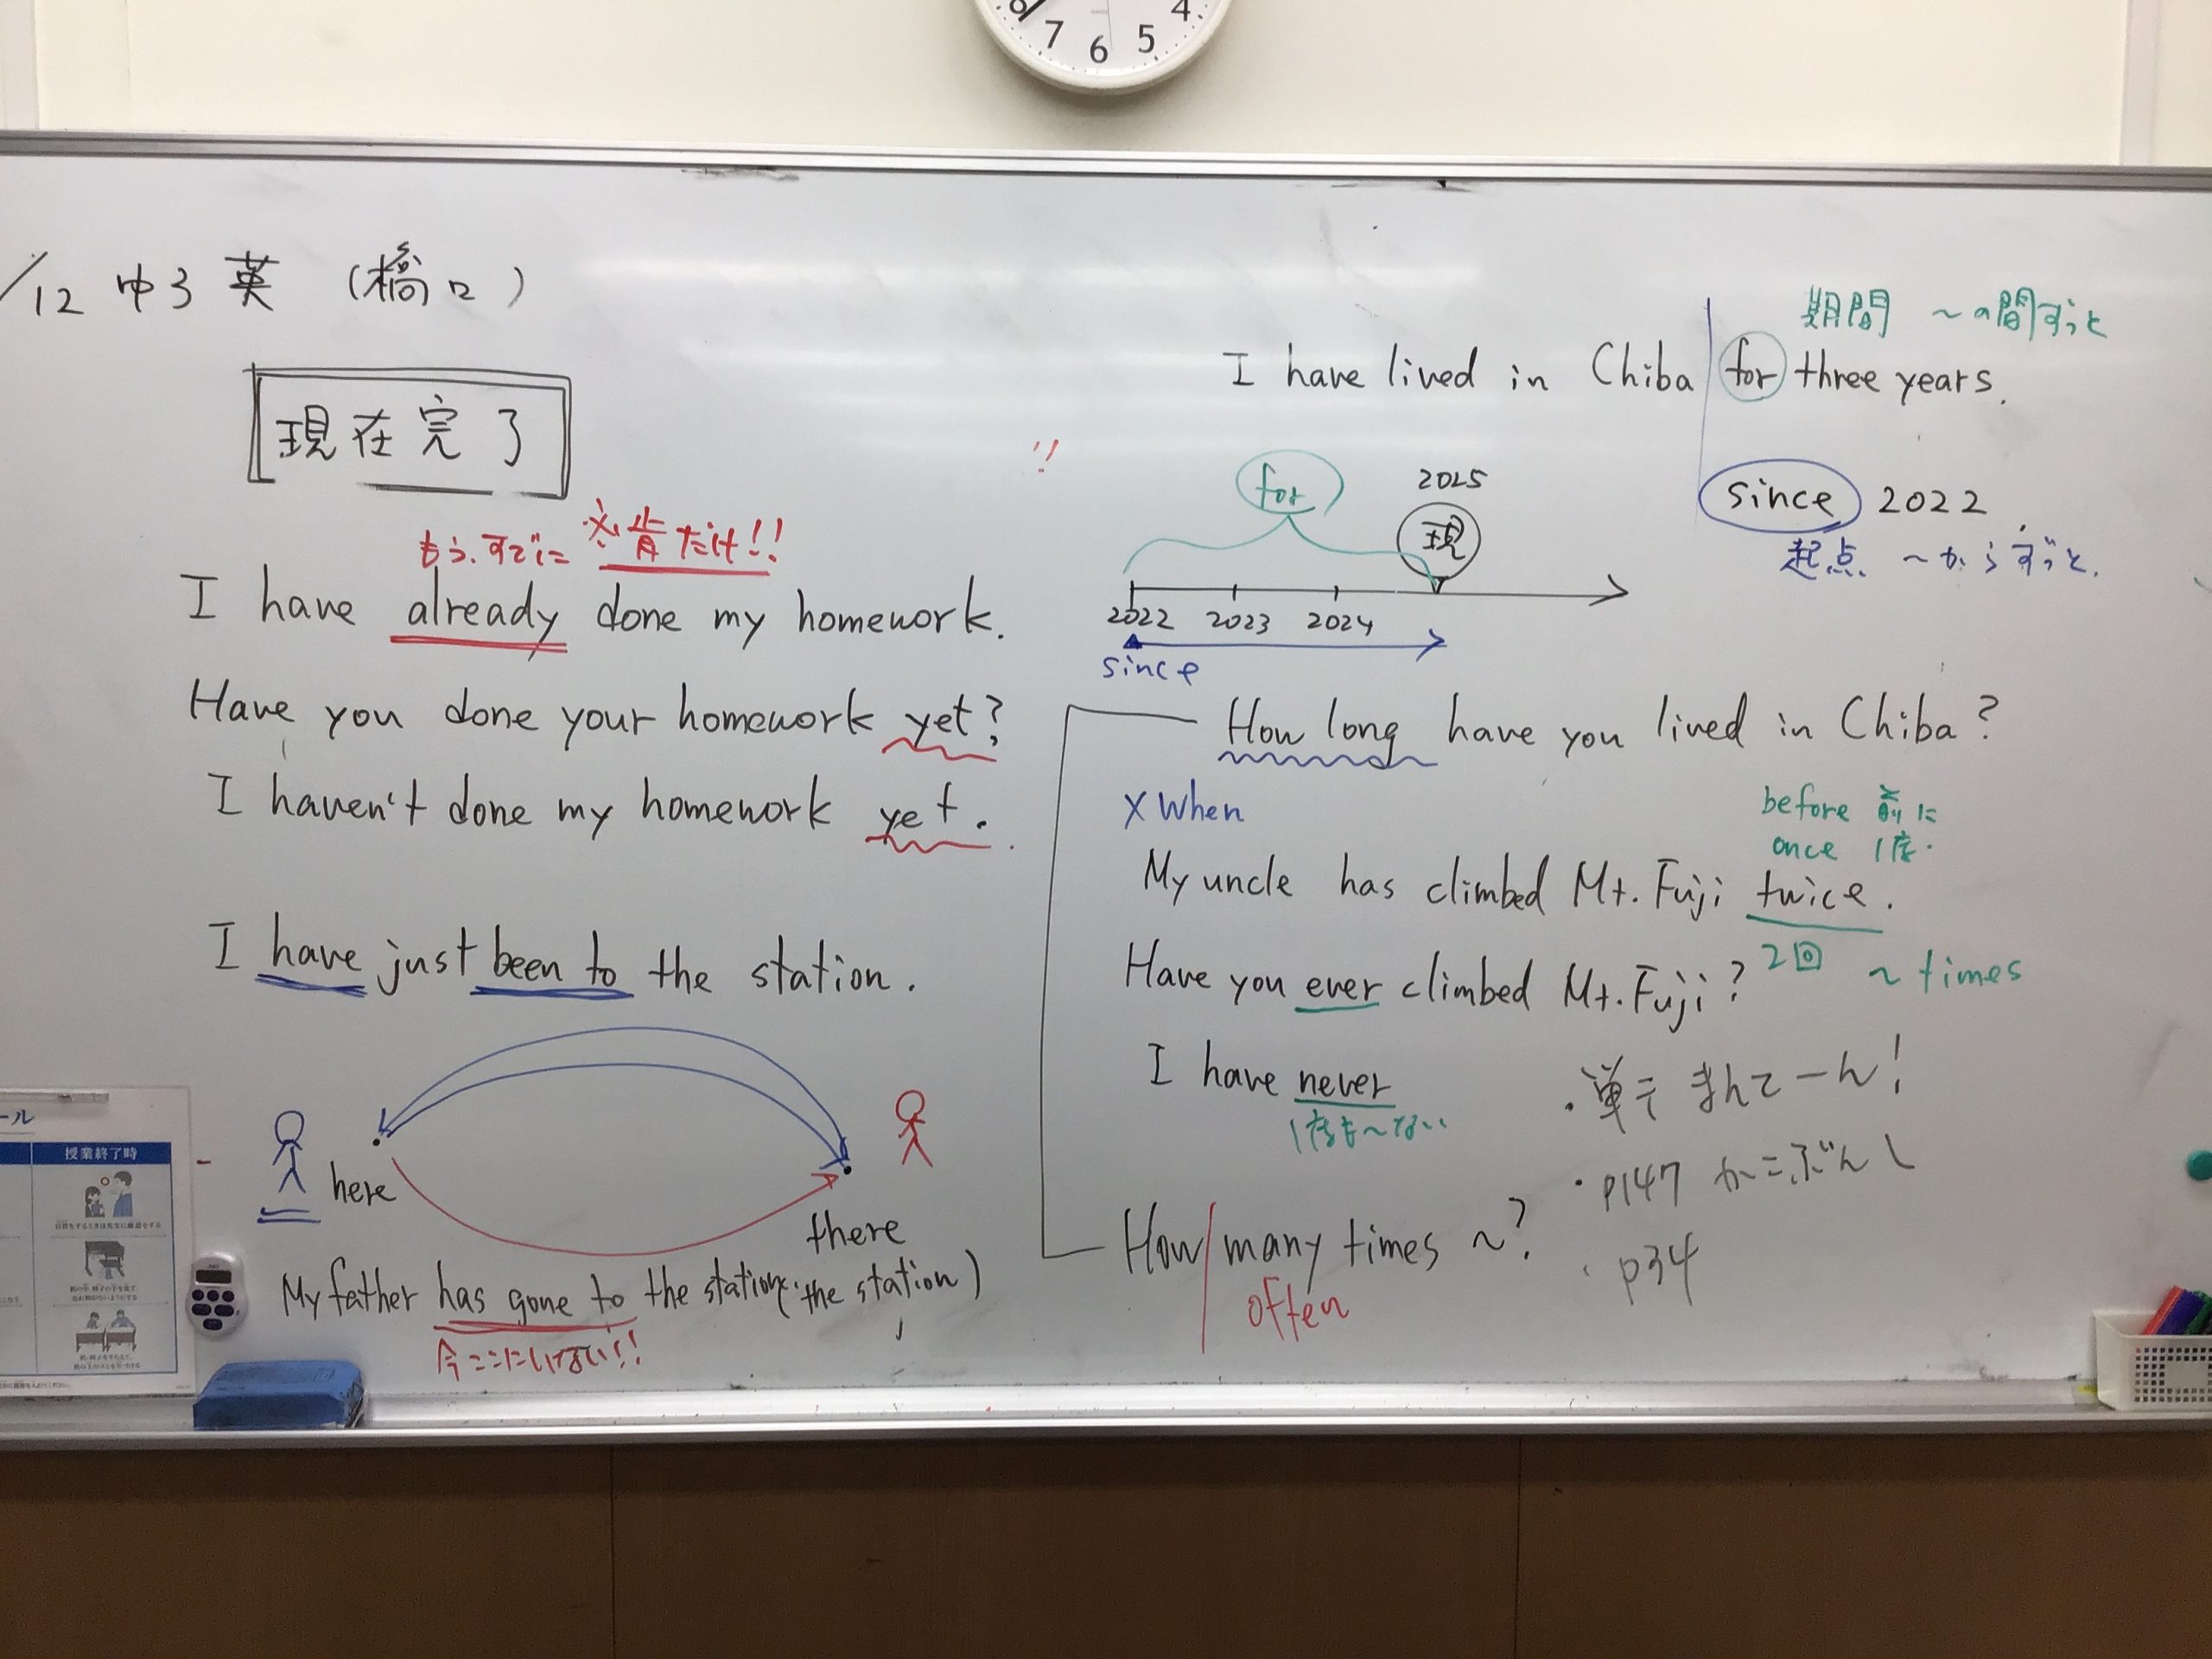 7 6 5 4
/12 中3 英 (橋口)
現在完了
もう、すでに ※肯だけ!!
I have already done my homework.
Have you done your homework yet?
I haven't done my homework yet.
I have just been to the station.
here
there
My father has gone to the station. (the station)
今ここにいない!!
!!
期間 〜の間ずっと
I have lived in Chiba for three years.
since 2022.
起点 〜からずっと.
for
2025
現
2022 2023 2024
since
How long have you lived in Chiba?
× When
before 前に
once 1度.
My uncle has climbed Mt. Fuji twice.
2回 〜times
Have you ever climbed Mt. Fuji?
I have never
1度も〜ない
How many times 〜?
often
・単テ まんてーん!
・p147 かこぶんし
・p34
ール
授業終了時